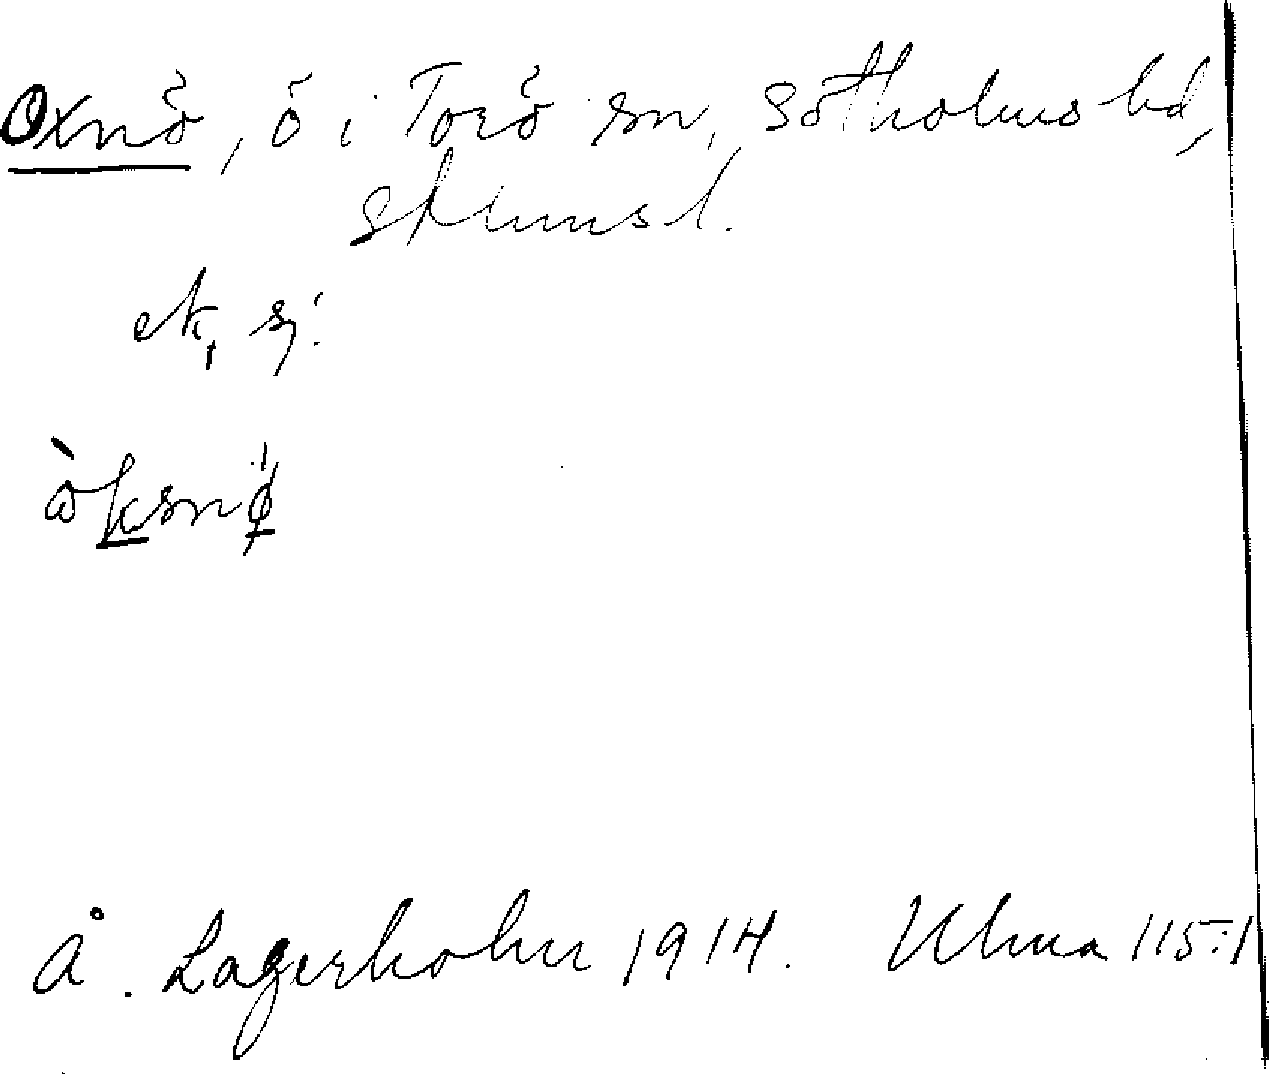 Oxnö, ö i Torö sn, Sotholms hd,
Sthlms l.
ek, sj:
òksnö̀
Å. Lagerholm 1914. Ulma 115:1